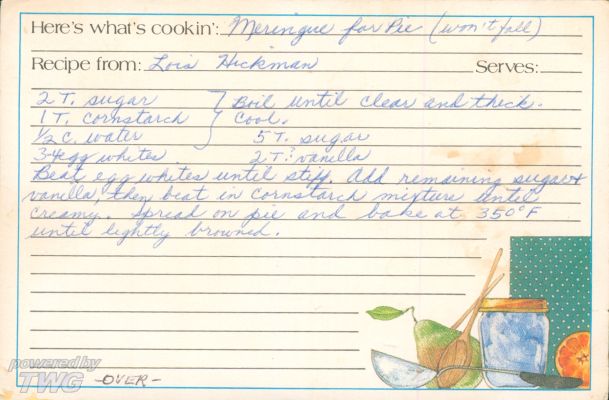 Here's what's cookin': Meringue for Pie (won't fall)
Recipe from: Lois Hickman Serves:
2 T. sugar } Boil until clear and thick.
1 T. cornstarch } Cool.
1/2 c. water } 5 T. sugar
3-4 egg whites 2 T.? vanilla
Beat egg whites until stiff. Add remaining sugar &
vanilla, then beat in cornstarch mixture until
creamy. Spread on pie and bake at 350°F
until lightly browned.
powered by
TWG -OVER-